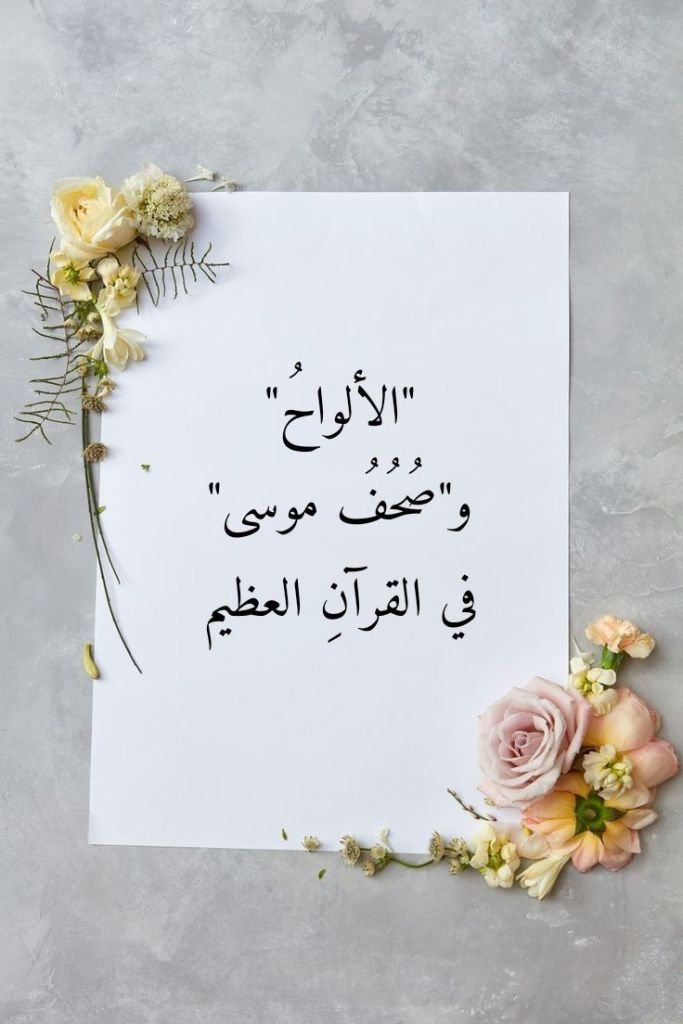 "الألواحُ"
و"صُحُفُ موسى"
في القرآنِ العظيم